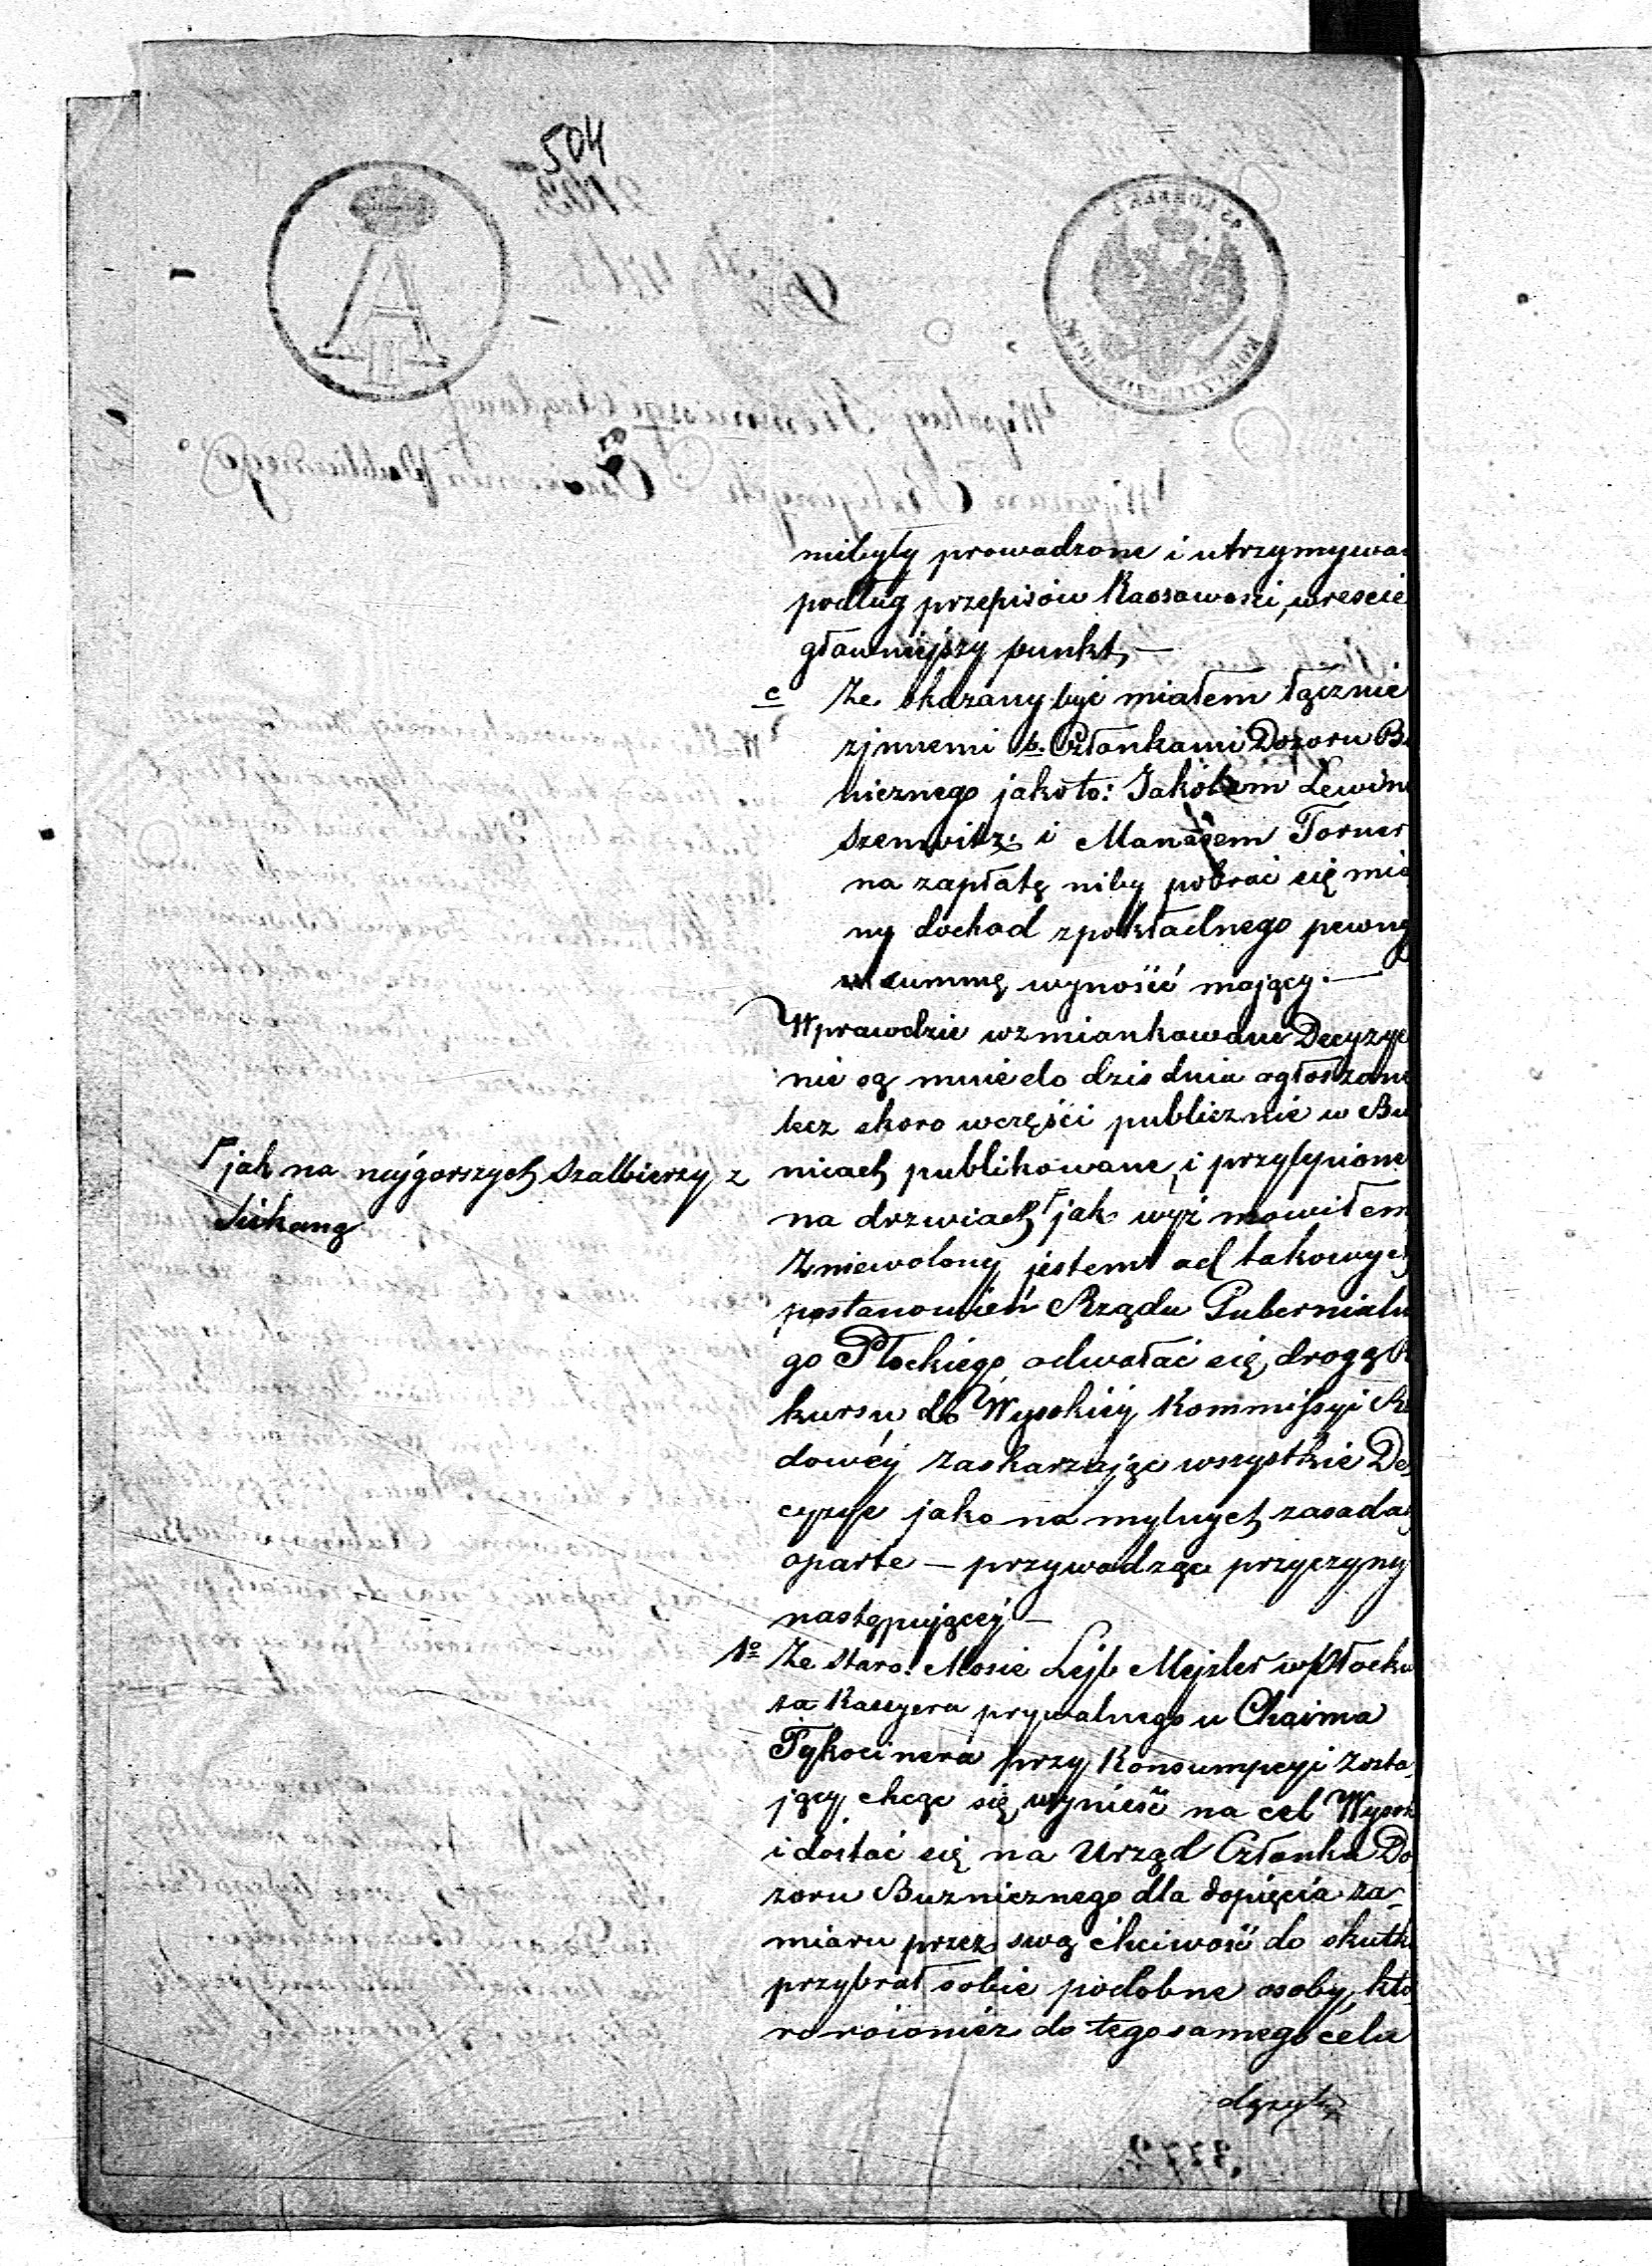 504
niebyły prowadzone i utrzymywa
podług przepisów Kassowości, wreście
główniejszy punkt, —
c Że skazany być miałem łącznie
zjnnemi b. Członkami Dozoru Bó
żnicznego jakoto: Jakóbem Lewin
i Manasem Torner
na zapłatę niby pobrać się mia
ny dochod zpokładnego pewną
summę wynosić mający. —
Wprawdzie wzmiankowane Decyzye
nie są mnie do dziś dnia ogłoszone
lecz skoro wczęści publicznie w Bu
nicach publikowane, i przylepione
na drzwiach Γ jak wyż mowiłem
Γ jak na najgorszych szalbierzy z
Zniewolony jestem od takowych
postanowień Rządu Gubernialne
go Płockiego odwołać się, drogą R
kursu, do Wysokiéy Kommissyi Rz
dowéy zaskarżając wszystkie De
cyzye jako na mylnych zasadach
oparte — przywodząc przyczyny
następującéj —
1o Że staro: Mosie Lejb Mejzler w Płocku
za Kassyera prywatnego u Chaima
Tykocinera przy Konsumpcyi zosta
jący chcąc się wynieść na cel Wysok
i dostać się na Urząd Członka Do
zoru Buzniczego dla dopięcia za-
miaru przez swą chciwość do skutk
przybrał sobie podobne osoby, któ
re rownież do tego samego celu
dążyły